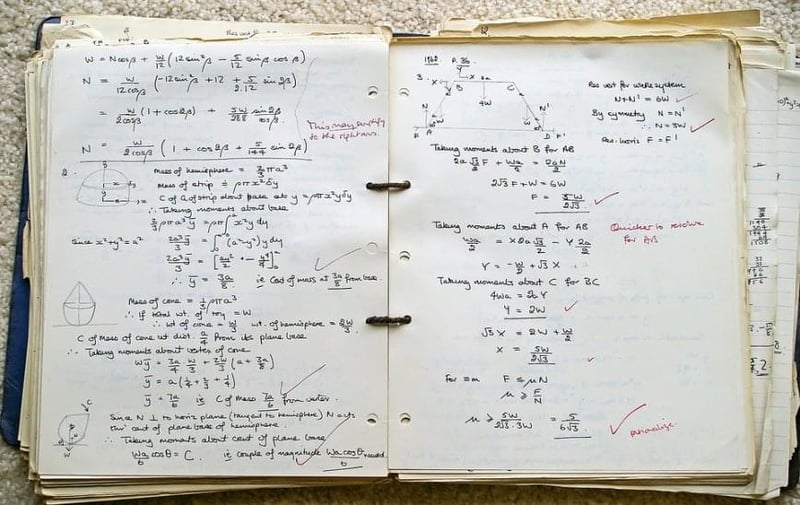 W = Ncosβ + W/12 (12 sin²β - 5/12 sinβ cosβ)
N = W/12cosβ (-12sin²β + 12 + 5/2.12 sin2β)
= W/2cosβ (1 + cos2β) + 5W/288 sin2β/cosβ.
This may simplify
to the right ans.
N = W/2cosβ (1 + cos2β + 5/144 sin2β)
2.
Mass of hemisphere = 2/3 ρπa³
Mass of strip = ρπx²δy
C of G of strip about base at y = ρπx²yδy
∴ Taking moments about base
2/3 ρπa³ȳ = ρπ∫x²y dy
Since x²+y²=a²
2a³ȳ/3 = ∫(a²-y²)y dy
2a³ȳ/3 = [a²y²/2 - y⁴/4]
∴ ȳ = 3a/8 ie C of mass at 3a/8 from base.
Mass of cone = 1/3 ρπa³
∴ If total wt. of toy = W
∴ wt of cone = W/3, wt. of hemisphere = 2W/3.
C of Mass of cone at dist. a/4 from its plane base
∴ Taking moments about vertex of cone
Wȳ = 3a/4 W/3 + 2W/3 (a + 3a/8)
ȳ = a(1/4 + 2/3 + 1/4)
ȳ = 7a/6 ie C of Mass 7a/6 from vertex.
Since N ⊥ to horiz plane (tangent to hemisphere) N acts
thro' cent of plane base of hemisphere.
∴ Taking moments about cent of plane base
Wa/6 cosθ = C. ie couple of magnitude Wa cosθ/6 needed
1968 P.
3.
Res vert for whole system
N+N' = 6W
By symmetry N = N'
∴ N = 3W
Res. horiz F = F'
Taking moments about B for AB
2a√3/2 F + Wa/2 = 2aN/2
2√3F + W = 6W
F = 5W/2√3
Taking moments about A for AB
Quicker to resolve
for AB
Wa/2 = X2a√3/2 - Y 2a/2
Y = -W/2 + √3 X
Taking moments about C for BC
4Wa = 2aY
Y = 2W
√3X = 2W + W/2
X = 5W/2√3
For ≡m F ≤ μN
μ ≥ F/N
μ ≥ 5W/2√3.3W = 5/6√3
rationalise